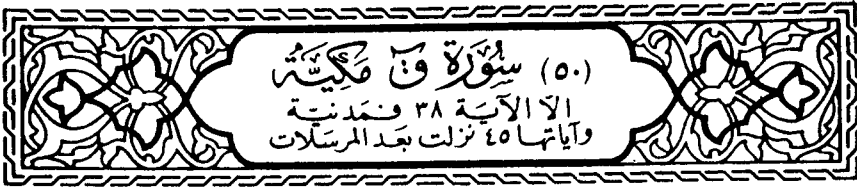 (٥٠) سُورَة قٓ مَكِيَّة
الّا الآيَة ٣٨ فمَدنيَّة
وآيَاتهَا ٤٥ نزلت بعَد المرسَلات